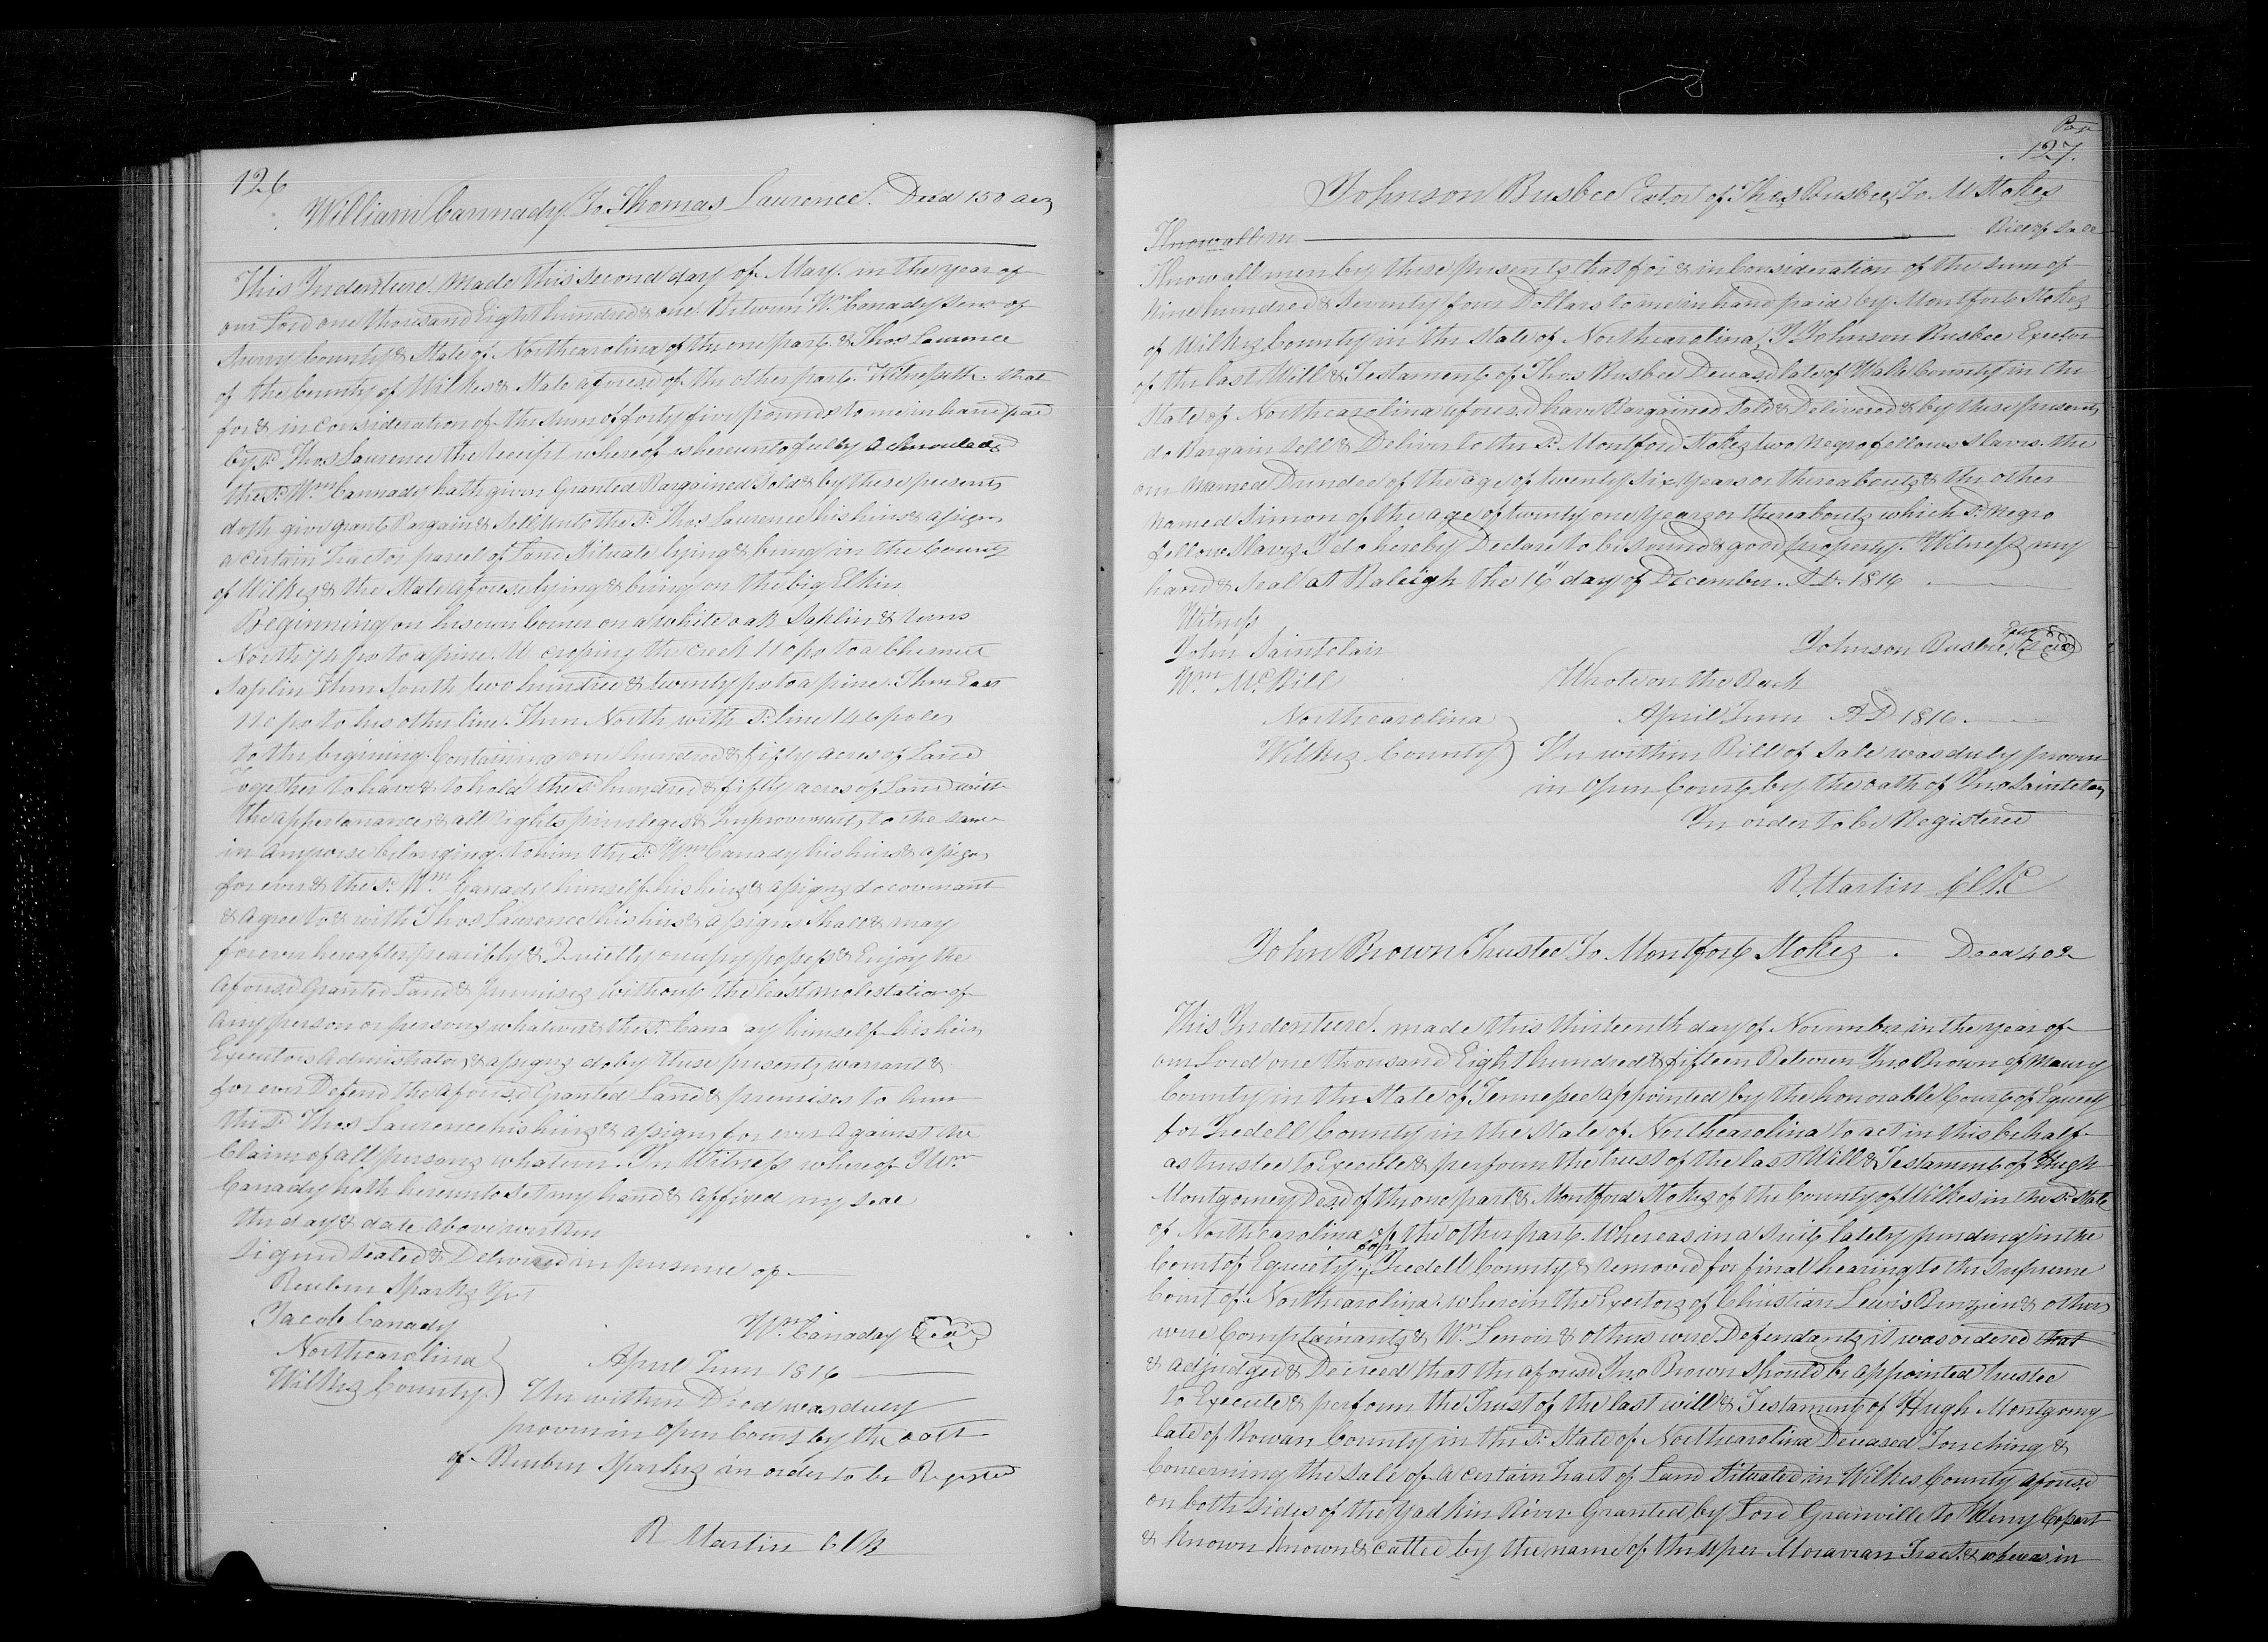 126
William Cannady To Thomas Laurence. Deed 150 acz
This Indenture made this second day of May in the year of
our Lord one thousand Eight hundred & one Between Wm Canady Senr of
Surry County & State of Northcarolina of the one part & Thos Laurence
of the County of Wilkes & State aforesd of the other part. Witnesseth that
for & in consideration of the sum of forty five pounds to me in hand paid
by sd Thos Laurence the receipt whereof is hereunto fully acknowledgd
the sd Wm Cannady hath given Granted Bargained Sold & by these presents
doth give grant Bargain & Sell unto the sd Thos Laurence his heirs & assigns
a certain Tract or parcel of Land Situate lying & being in the County
of Wilkes & the State aforesd lying & being on the big Elkin
Beginning on his own Corner on a white oak Saplin & runs
North 74 po to a pine. W crossing the creek 110 po to a Chesnut
Saplin Then South two hundred & twenty po to a pine. Then East
110 po to his other line. Then North with sd line 146 poles
to the begining. Containing one hundred & fifty acres of Land
Together to have & to hold the sd hundred & fifty acres of Land with
the appertanances & all rights privileges & Improvements to the same
in anywise belonging to him the sd Wm Canady his heirs & assigns
for ever & the sd Wm Canady himself his heirs & assigns do covenant
& agree to & with Thos Laurence his heirs & assigns shall & may
forever hereafter peacibly & Quietly occupy possess & Enjoy the
aforesd Granted Land & premises without the least molestation of
any person or persons whatever & the sd Cana ay himself his heirs
Executors Administrators & assigns do by these presents warrant &
for ever Defend the aforesd Granted Land & premises to him
the sd Thos Laurence his heirs & assigns for ever against the
Claim of all persons whatever. In Witness whereof I Wm
Canady hath hereunto Set my hand & affixed my seal
the day & date above written
Signed Sealed & Delivered in presence of
Reuben Sparks Jur
Jacob Canady
Wm Canaday Seal
Northcarolina
Wilkes County.
April Term 1816
The within Deed was duly
proven in open Court by the oath
of Reuben Sparks in order to be Registed
R Martin ClK
Page
127.
Johnson Busbee Extor of Thos Busbee To M Stokes
Bill of Sale
Know all m
Know all men by these presents that for & in Consideration of the sum of
Nine hundred & Seventy four Dollars to me in hand paid by Montfort Stokes
of Wilkes County in the State of Northcarolina I Johnson Busbee Exetor
of the last Will & Testament of Thos Busbee Deceasd late of Wake County in the
State of Northcarolina aforesd have Bargained Sold & Delivered & by these presents
do Bargain Sell & Deliver to the sd Montford Stokes two negro fellows slaves. the
one named Dundee of the age of twenty six years or thereabouts & the other
named Simon of the age of twenty one years or thereabouts which sd negro
fellow Slaves I do hereby Declare to be Sound & good property. Witness my
hand & Seal at Raleigh the 16 day of December. AD. 1816
Witness
John Saintclair
Wm McKill
Johnson Busbee Seal
Whole on the Back
Northcarolina
Wilkes County
April Term AD 1816
The within Bill of Sale was duly proven
in open Court by the oath of Jno Saintclar
In order to be Registered
R. Martin ClK
John Brown Trustee To Montfort Stokes. Deed 402
This Indenture. made this thirteenth day of November in the year of
our Lord one thousand Eight hundred & fifteen Between Jno Brown of Maury
County in the State of Tennessee appointed by the honorable Court of Equity
for Iredell County in the State of Northcarolina to act in this behalf
as trustee to Execute & perform the trust of the last Will & Testament of Hugh
Montgomery Decd of the one part & Montford Stokes of the County of Wilkes in the sd State
of Northcarolina of the other part. Whereas in a suit lately pending in the
Court of Equity of Iredell County & removed for final hearing to the Supreme
Court of Northcarolina. wherein the Exetors of Christian Lewis Benzien & others
were Complainants & Wm Lenoir & others were Defendants it was ordered that
& adjudged & Decreed that the aforesd Jno Brown should be appointed trustee
to Execute & perform the Trust of the last will & Testament of Hugh Montgomy
late of Rowan County in the sd State of Northcarolina Deceased Touching &
Concerning the sale of a certain Tract of Land Situated in Wilkes County aforesd
on both sides of the Yadkin River. Granted by Lord Granville to Henry Cossart
& Known Known & called by the name of the upper Moravian Tract. & whereas in